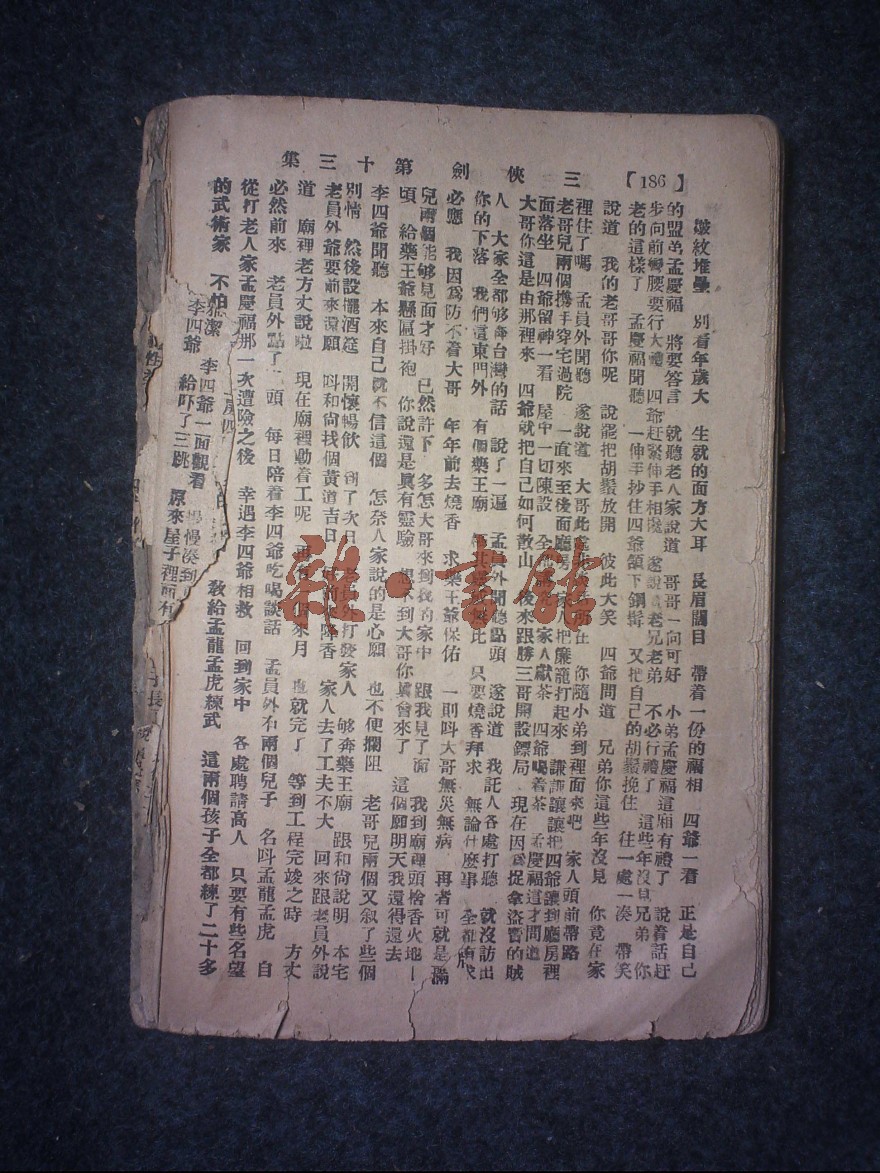 三俠劍第十三集
【186】
皺紋堆壘　別看年歲大　生就的面方大耳　長眉闊目　帶着一份的福相　四爺一看　正是自己
的盟弟孟慶福　將要答言　就聽老人家說道　哥哥一向可好　小弟孟慶福這廂有禮了　說着話赶
步向前彎腰要行大禮　四爺赶緊伸手相攙　遂說道老兄老弟　不必行禮了　這些年沒見兄弟　你
老的這樣了　孟慶福聞聽　一伸手抄住四爺頷下鋼髯　又把自己的胡鬚挽住　往一處一湊　帶笑
說道　我的老哥哥你呢　說罷把胡鬚放開　彼此大笑　四爺問道　兄弟你這些年沒見　你竟在家
裡住了嗎　孟員外聞聽　遂說道　大哥此　所在　你隨小弟到裡面來吧　家人頭前帶路
老哥兒兩個携手穿宅過院　一直來至後面廳房　家人把簾籠打起來　謙謙讓讓把四爺讓到廳房裡
面落坐　四爺留神一看　屋中一切陳設　全　家人獻茶　四爺喝着茶　孟慶福這才問道
大哥你這是由那裡來　四爺就把自己如何散山　後來跟勝三哥開設鏢局　現在因爲捉拿盜寶的賊
人　大家全都够奔台灣的話　說了一遍　孟員外聞聽點頭　遂說道　我託人各處打聽　就沒訪出
你的下落　我們這東門外　有個藥王廟　其　比　只要燒香拜求　無論什麽事　全都有求
必應　我因爲防不着大哥　年年前去燒香　求藥王爺保佑　一則叫大哥無災無病　再者可就是滿
兒兩個能够見面才好　已然許下　多怎大哥來到我的家中　跟我見了面　我到廟裡頭捨香火地一
頃　給藥王爺懸匾掛袍　你說還是眞有靈驗　想不到大哥你眞會來了　這個願明天我還得還去
李四爺聞聽　本來自己就不信這個　怎奈人家說的是心願　也不便攔阻　老哥兒兩個又叙了些個
別情　然後設擺酒筵　開懷暢飲　到了次日　員外打發家人　够奔藥王廟　跟和尙說明　本宅
老員外爺要前來還願　叫和尙找個黃道吉日　好前來降香　家人去了工夫不大　回來跟老員外說
道　廟裡老方丈說啦　現在廟裡動着工呢　再有個來月　也就完了　等到工程完竣之時　方丈
必然前來　老員外點了點頭　每日陪着李四爺吃喝談話　孟員外有兩個兒子　名叫孟龍孟虎　自
從打老人家孟慶福那一次遭險之後　幸遇李四爺相救　回到家中　各處聘請高人　只要有些名望
的武術家　不怕　敎給孟龍孟虎練武　這兩個孩子全都練了二十多
潔　李四爺一面觀看　慢慢湊到
李四爺　給吓了三跳　原來屋子裡面有
雜·書館